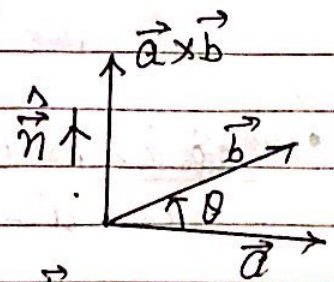 $\vec{a} \times \vec{b}$
$\hat{\vec{n}}$
$\vec{b}$
θ
$\vec{a}$